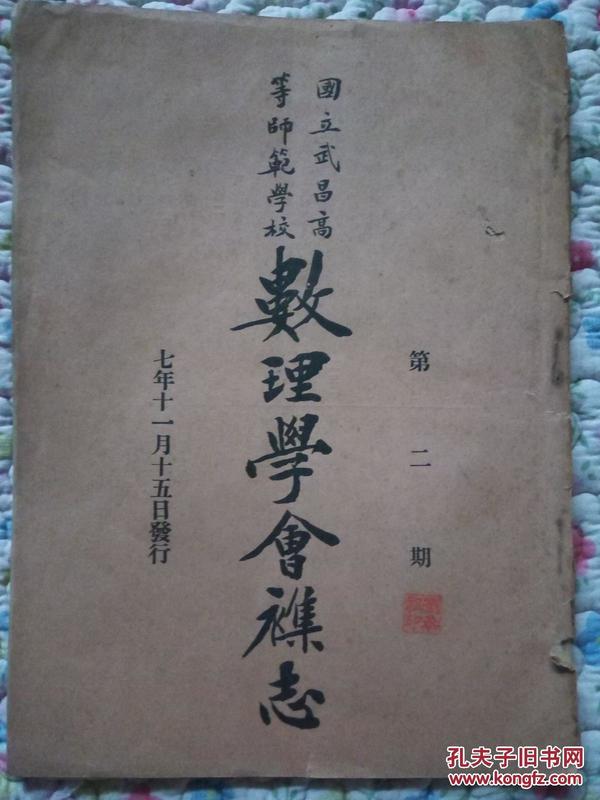 第二期
國立武昌高
等師範學校
數理學會襍志
七年十一月十五日發行
孔夫子旧书网
www.kongfz.com